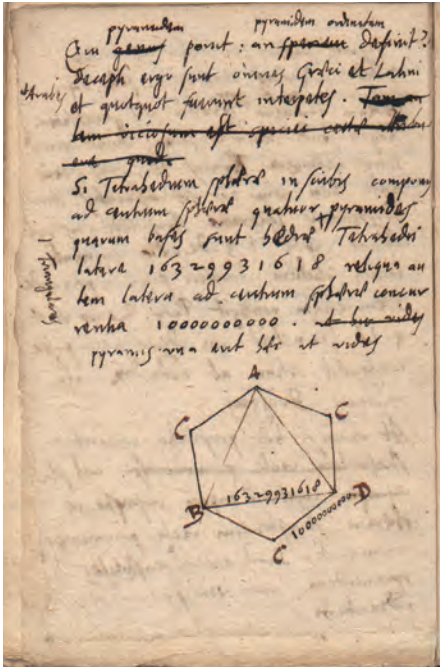 pyramidem pyramidem ordinatam
An genus ponit: an speciem definit?
decepti ergo sunt omnes Græci et Latini
et Arabes
et quotquot fuerunt interpretes.
est speciei
quod.
Si Tetrahedrum sphæræ inscribis
ad centrum sphæræ quatuor pyramides
quarum bases sunt hedræ Tetrahedri
latera 16329931618 reliqua au
tem latera ad centrum sphæræ concur
rentia 10000000000. ut hic vides
pyramis una erit hæc ut vides
A
C
C
16329931618
B
D
10000000000
C